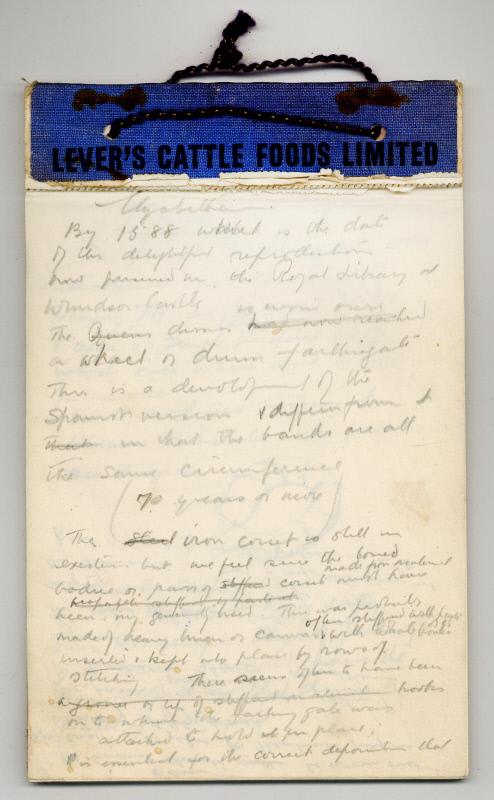 LEVER'S CATTLE FOODS LIMITED
Elizabethan
By 1588 which is the date
of this delightful reproduction
now preserved in the Royal Library at
Windsor Castle
The Queens dress has now reached
a wheel or drum farthingale
This is a development of the
Spanish version & differs from it
in that the bands are all
the same circumference
(70 years or more)
The steel iron corset is still in
existence but we feel sure the boned
made from material
bodice or pair of stuffed corset must have
been generally used. This was probably
often stiffened with paste
made of heavy linen or canvas & with whale bones
inserted & kept into place by rows of
stitching There seems often to have been
a or of stuffed material hooks
on to which the farthingale was
attached to hold it in place.
It is essential for the correct that